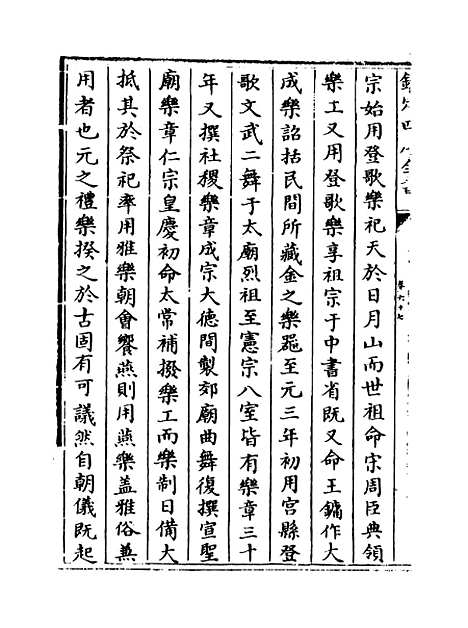 欽定四庫全書
卷六十七
宗始用登歌樂祀天於日月山而世祖命宋周臣典領
樂工又用登歌樂享祖宗于中書省既又命王鏞作大
成樂詔括民間所藏金之樂器至元三年初用宫縣登
歌文武二舞于太廟烈祖至憲宗八室皆有樂章三十
年又撰社稷樂章成宗大德間製郊廟曲舞復撰宣聖
廟樂章仁宗皇慶初命太常補撥樂工而樂制日備大
抵其於祭祀率用雅樂朝會饗燕則用燕樂盖雅俗兼
用者也元之禮樂揆之於古固有可議然自朝儀既起